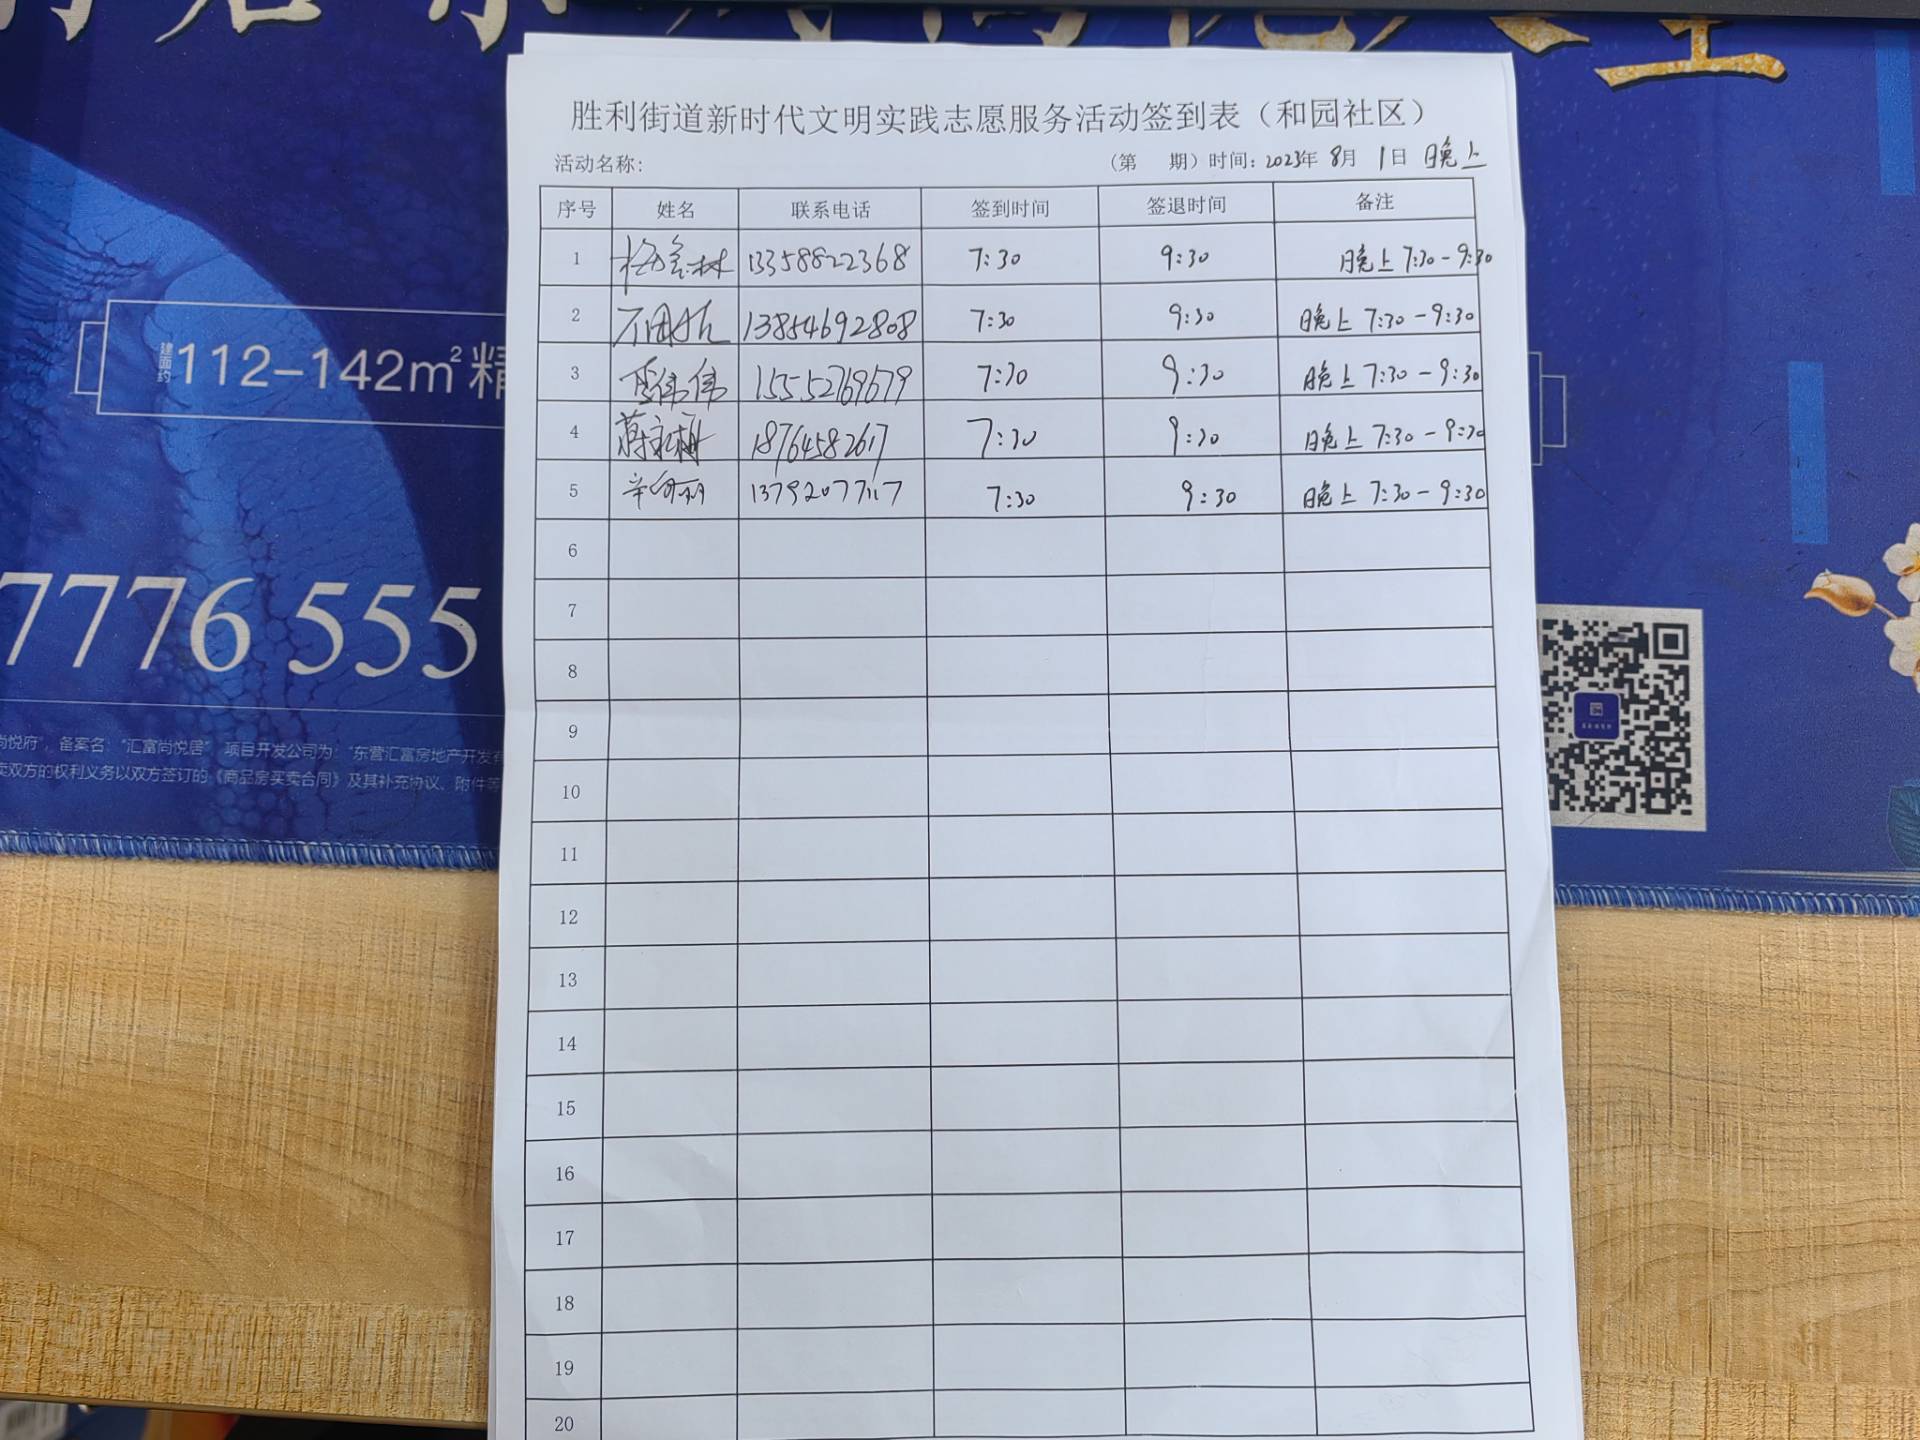 胜利街道新时代文明实践志愿服务活动签到表（和园社区）
活动名称: （第 期）时间: 2023年 8月 1日 晚上
序号 姓名 联系电话 签到时间 签退时间 备注
1 13358822368 7:30 9:30 晚上 7:30-9:30
2 13854692808 7:30 9:30 晚上 7:30-9:30
3 伟伟 15552769679 7:30 9:30 晚上 7:30-9:30
4 18764582617 7:30 9:30 晚上 7:30-9:30
5 13792077117 7:30 9:30 晚上 7:30-9:30
6
7
8
9
10
11
12
13
14
15
16
17
18
19
20
建面约112-142m²精
7776 555
尚悦府"，备案名："汇富尚悦居" 项目开发公司为："东营汇富房地产开发有
卖双方的权利义务以双方签订的《商品房买卖合同》及其补充协议、附件等